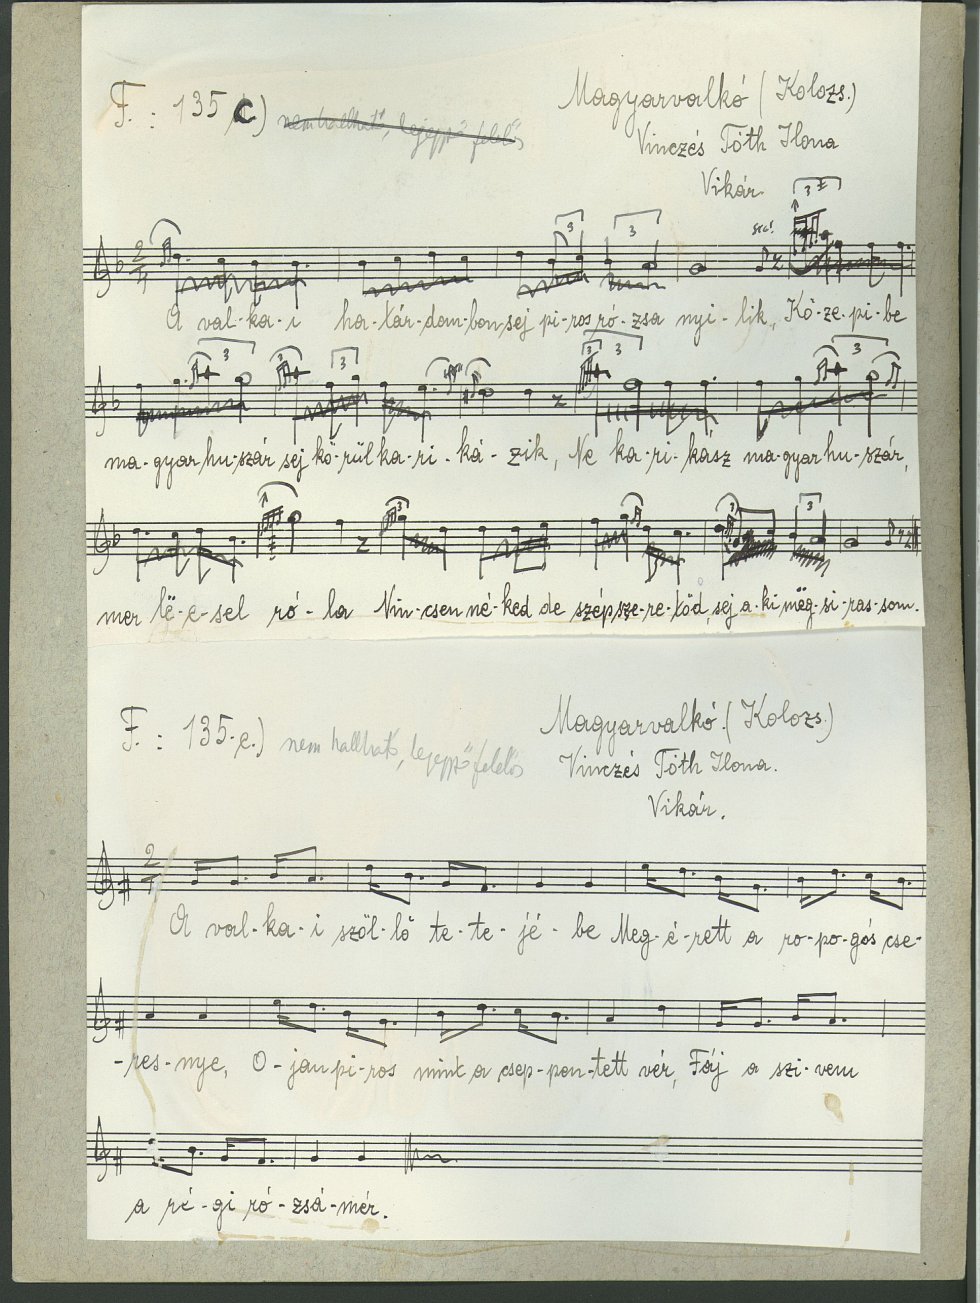 F. : 135 c)
Magyarvalkó (Kolozs.)
nem hallható, lejegyző felelős
Vinczés Tóth Ilona
Vikár.
A val-ka-i ha-tár-dom-bon, sej pi-ros ró-zsa nyi-lik, Kö-ze-pi-be
ma-gyar hu-szár sej kö-rül ka-ri-ká-zik, Ne ka-ri-kász ma-gyar hu-szár,
mer lë-e-sel ró-la Nin-csen né-ked de szép sze-re-tőd, sej a-ki mëg-si-ras-som.
F. : 135.e.)
Magyarvalkó. (Kolozs.)
nem hallható, lejegyző felelős
Vinczés Tóth Ilona.
Vikár.
A val-ka-i szöl-lő te-te-jé-be Meg-é-rett a ro-po-gós cse-
-res-nye, O-jan pi-ros mint a csep-pen-tett vér, Fáj a szi-vem
a ré-gi ró-zsá-mér.